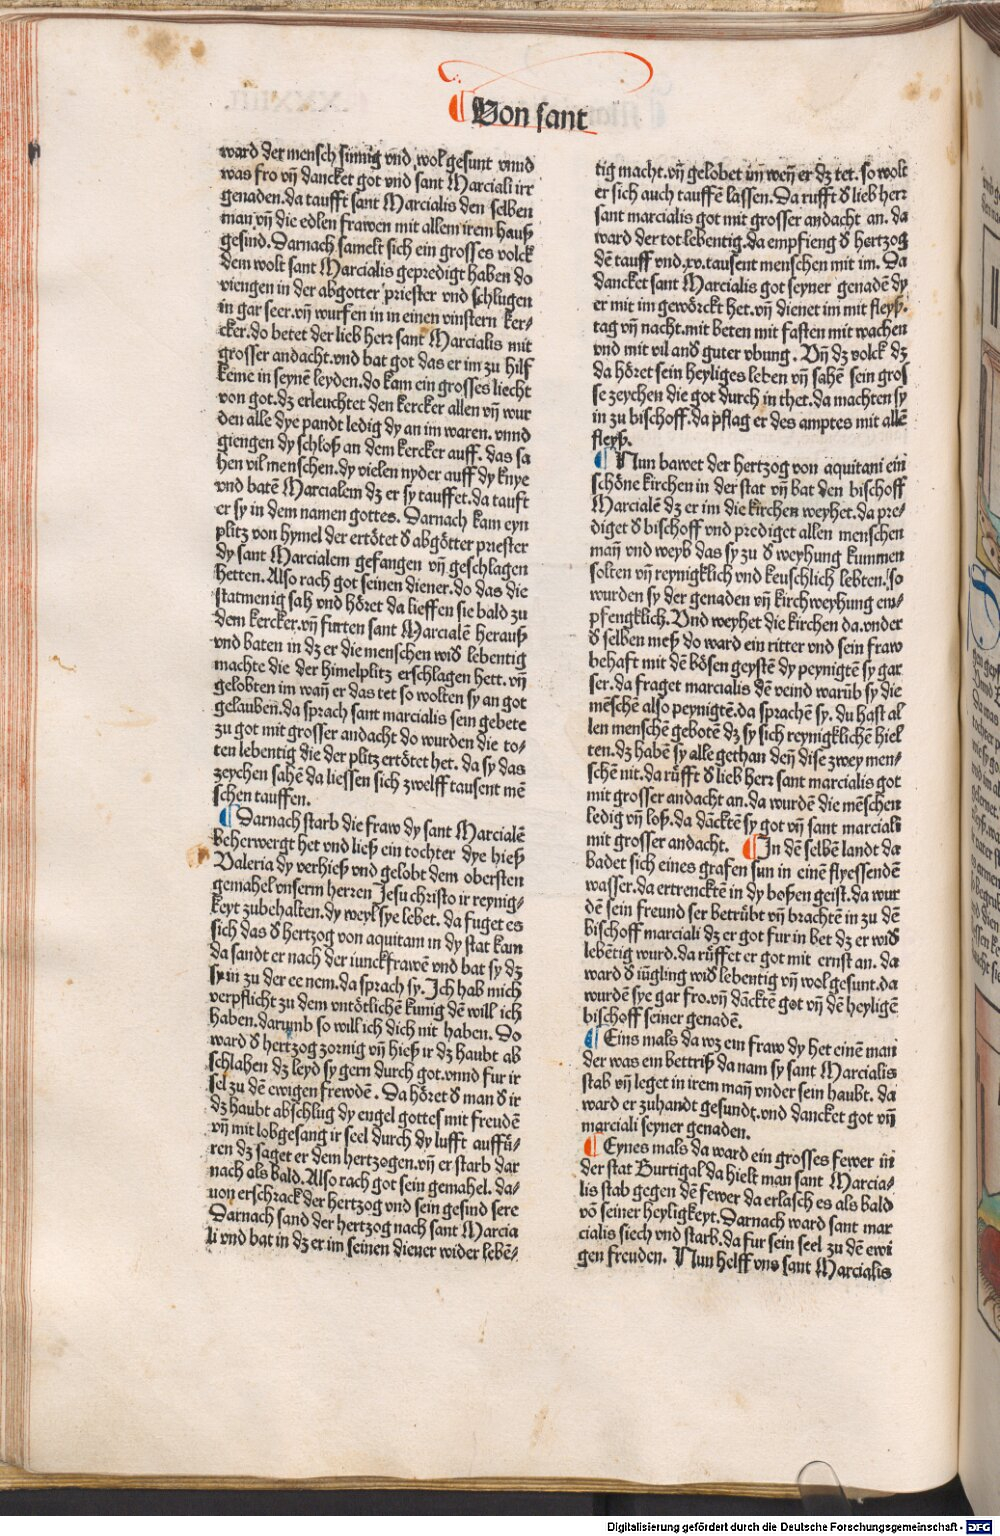 Von sant
ward der mensch sinnig vnd wol gesunt vnnd
was fro vñ dancket got vnd sant Marciali irr
genaden.da taufft sant Marcialis den selben
man vñ die edlen frawen mit allem irem hauß
gesind. Darnach samelt sich ein grosses volck
dem wolt sant Marcialis gepredigt haben do
viengen in der abgotter priester vnd schlugen
in gar seer.vñ wurfen in in einen vinstern ker⸗
cker.do betet der lieb herr sant Marcialis mit
grosser andacht.vnd bat got das er im zu hilf
keme in seynē leyden.do kam ein grosses liecht
von got.dz erleuchtet den kercker allen vñ wur
den alle dye pandt ledig dy an im waren. vnnd
giengen dy schloß an dem kercker auff. das sa
hen vil menschen.dy vielen nyder auff dy knye
vnd batē Marcialem dz er sy tauffet.da tauft
er sy in dem namen gottes. Darnach kam eyn
plitz von hymel der ertötet ð abgötter priester
dy sant Marcialem gefangen vñ geschlagen
hetten. Also rach got seinen diener.do das die
statmenig sah vnd höret da lieffen sie bald zu
dem kercker.vñ furten sant Marcialē herauß
vnd baten in dz er die menschen wið lebentig
machte die der himelplitz erschlagen hett. vñ
gelobten im wañ er das tet so wolten sy an got
gelauben.da sprach sant marcialis sein gebete
zu got mit grosser andacht do wurden die to⸗
ten lebentig die der plitz ertötet het. da sy das
zeychen sahē da liessen sich zwelff tausent mē
schen tauffen.
¶ Darnach starb die fraw dy sant Marcialē
beherwergt het vnd ließ ein tochter dye hieß
Valeria dy verhieß vnd gelobt dem obersten
gemahel vnserm herren Jesu christo ir reynig⸗
keyt zubehalten.dy weyl sye lebet. da fuget es
sich das ð hertzog von aquitam in dy stat kam
da sandt er nach der iunckfrawē vnd bat sy dz
sy in zu der ee nem.da sprach sy. Ich hab mich
verpflicht zu dem vntötlichē kunig dē will ich
haben.darumb so will ich dich nit haben. Do
ward ð hertzog zornig vñ hieß ir dz haubt ab
schlahen dz leyd sy gern durch got.vnnd fur ir
sel zu dē ewigen frewdē. Da höret ð man ð ir
dz haubt abschlug dy engel gottes mit freudē
vñ mit lobgesang ir seel durch dy lufft auffü⸗
ren dz saget er dem hertzogen.vñ er starb dar
nach als bald. Also rach got sein gemahel. da⸗
uon erschrack der hertzog vnd sein gesind sere
Darnach sand der hertzog nach sant Marcia
li vnd bat in dz er im seinen diener wider lebē⸗
tig macht.vñ gelobet im weñ er dz tet. so wolt
er sich auch tauffē lassen. Da rufft ð lieb herr
sant marcialis got mit grosser andacht an. da
ward der tot lebentig.da empfieng ð hertzog
dē tauff vnd.xv.tausent menschen mit im. Da
dancket sant Marcialis got seyner genadē dy
er mit im gewörckt het.vñ dienet im mit fleyß.
tag vñ nacht.mit beten mit fasten mit wachen
vnd mit vil and guter vbung. Vñ dz volck dz
da höret sein heyliges leben vñ sahē sein gros
se zeychen die got durch in thet.da machten sy
in zu bischoff.da pflag er des amptes mit allē
fleyß.
¶ Nun bawet der hertzog von aquitani ein
schöne kirchen in der stat vñ bat den bischoff
Marcialē dz er im die kirchen weyhet.da pre⸗
diget ð bischoff vnd prediget allen menschen
mañ vnd weyb das sy zu ð weyhung kummen
solten vñ reynigklich vnd keuschlich lebten. so
wurden sy der genaden vñ kirchweyhung em⸗
pfengklich. Vnd weyhet die kirchen da.vnder
ð selben meß do ward ein ritter vnd sein fraw
behaft mit dē bösen geystē dy peynigtē sy gar
ser.da fraget marcialis dē veind warūb sy die
mēschē also peynigtē.da sprachē sy. du hast al
len menschē gebotē dz sy sich reynigklichē hiel
ten.dz habē sy alle gethan deñ dise zwey men⸗
schē nit.da rüfft ð lieb herr sant marcialis got
mit grosser andacht an.da wurdē die mēschen
ledig vñ loß.da dācktē sy got vñ sant marciali
mit grosser andacht. ¶ In dē selbē landt da
badet sich eines grafen sun in einē flyessendē
wasser.da ertrencktē in dy boßen geist.da wur
dē sein freund ser betrübt vñ brachtē in zu dē
bischoff marciali dz er got fur in bet dz er wið
lebētig wurd.da rüffet er got mit ernst an. da
ward ð iūgling wið lebentig vñ wol gesunt.da
wurdē sye gar fro.vñ dācktē got vñ dē heyligē
bischoff seiner genadē.
¶ Eins mals da wz ein fraw dy het einē man
der was ein bettriß da nam sy sant Marcialis
stab vñ leget in irem mañ vnder sein haubt. da
ward er zuhandt gesundt.vnd dancket got vñ
marciali seyner genaden.
¶ Eynes mals da ward ein grosses fewer in
der stat Burtigal da hielt man sant Marcia⸗
lis stab gegen dē fewer da erlasch es als bald
vō seiner heyligkeyt. Darnach ward sant mar
cialis siech vnd starb.da fur sein seel zu dē ewi
gen freuden. Nun helff vns sant Marcialis
Digitalisierung gefördert durch die Deutsche Forschungsgemeinschaft - DFG